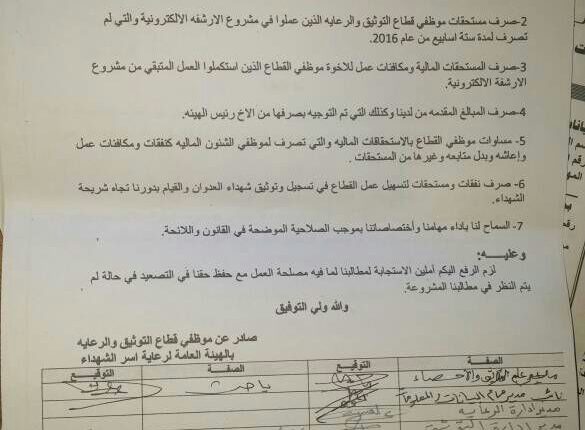 2-صرف مستحقات موظفي قطاع التوثيق والرعايه الذين عملوا في مشروع الارشفه الالكترونية والتي لم
تصرف لمدة ستة اسابيع من عام 2016.
3-صرف المستحقات المالية ومكافئات عمل للاخوة موظفي القطاع الذين استكملوا العمل المتبقي من مشروع
الارشفة الالكترونية.
4-صرف المبالغ المقدمه من لدينا وكذلك التي تم التوجيه بصرفها من الاخ رئيس الهيئه.
5- مساوات موظفي القطاع بالاستحقاقات الماليه والتي تصرف لموظفي الشئون الماليه كنفقات ومكافئات عمل
وإعاشه وبدل متابعه وغيرها من المستحقات .
6- صرف نفقات ومستحقات لتسهيل عمل القطاع في تسجيل وتوثيق شهداء العدوان والقيام بدورنا تجاه شريحة
الشهداء.
7- السماح لنا بأداء مهامنا وأختصاصاتنا بموجب الصلاحية الموضحة في القانون واللائحة.
وعليــــه:
لزم الرفع اليكم أملين الاستجابة لمطالبنا لما فيه مصلحة العمل مع حفظ حقنا في التصعيد في حالة لم
يتم النظر في مطالبنا المشروعة.
والله ولي التوفيق
صادر عن موظفي قطاع التوثيق والرعايه
بالهيئة العامة لرعاية اسر الشهداء
الصفة التوقيع الصفة التوقيع
والاحصاء باحث
نائب مدير عام البيانات والمعلومات
مدير ادارة الرعايه
مدير ادارة